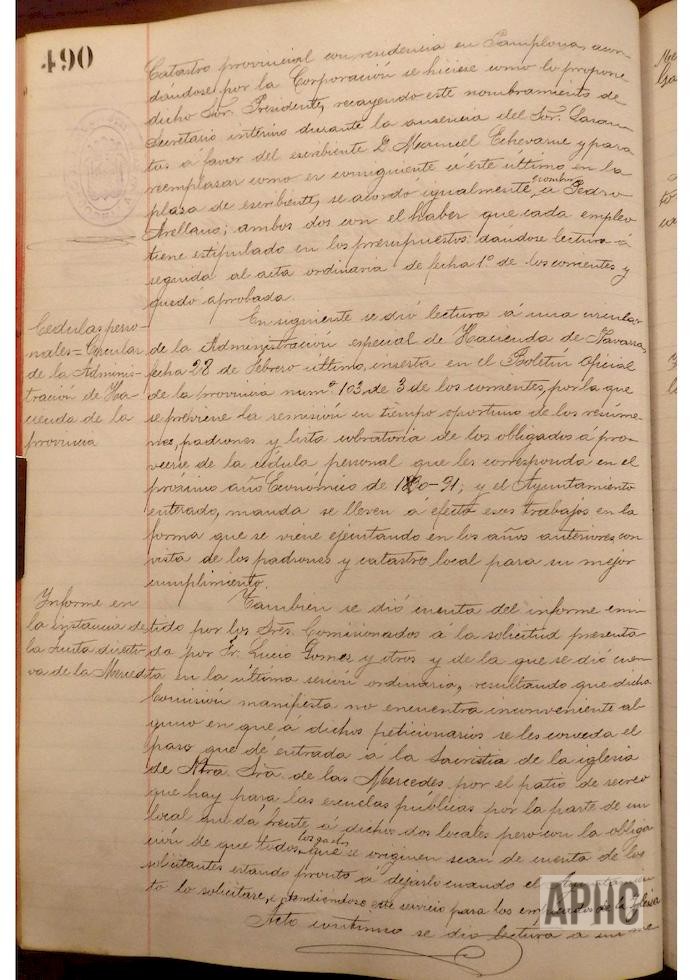 490
Catastro provincial con residencia en Pamplona, acor-
dándose por la Corporación se hiciese como lo propone
dicho Sor. Presidente, recayendo este nombramiento de
Secretario interino durante la ausencia del Sor.
tas á favor del escribiente D. Manuel Echevarne y para
reemplasar como es consiguiente á este último en la
plasa de escribiente, se acordó igualmente á Pedro
Arellano; ambos dos con el haber que cada empleo
tiene estipulado en los presupuestos: dándose lectura á
seguida al acta ordinaria de fecha 1º de los corrientes y
quedó aprobada.
Cedulas perso-
nales = Circular
de la Adminis-
tración de Ha-
cienda de la
provincia
En siguiente se dió lectura á una circular
de la Administración especial de Hacienda de Navarra,
fecha 28 de Febrero último, inserta en el Boletín Oficial
de la provincia numº 103, de 3 de los corrientes, por la que
se previene la remisión en tiempo oportuno de los resúme-
nes, padrones y lista cobratoria de los obligados á pro-
veerse de la cédula personal que les corresponda en el
próximo año Económico de 1890-91; y el Ayuntamiento
enterado, manda se lleven á efecto esos trabajos en la
forma que se viene ejecutando en los años anteriores con
vista de los padrones y catastro local para su mejor
cumplimiento.
Informe en
la instancia de
la Junta directi-
va de la Merced
Tambien se dió cuenta del informe emi-
tido por los Sres. Comisionados á la solicitud presenta-
da por Fr. Lucio Gomes y otros y de la que se dió cuen-
ta en la última sesión ordinaria, resultando que dicha
Comisión manifiesta no encuentra inconveniente al-
guno en que á dichos peticionarios se les conceda el
paso que dé entrada á la Sacristia de la iglesia
de Ntra Sra de las Mercedes por el patio de recreo
que hay para las escuelas públicas por la parte de un
local dá frente á dichos dos locales pero con la obliga
ción de que todos los gastos que se originen sean de cuenta de los
solicitantes estando pronto á dejarlo cuando el
to lo solicitare, entendiéndose este servicio para los empleados de la Iglesia
Acto continuo se dió lectura á un me
APHC